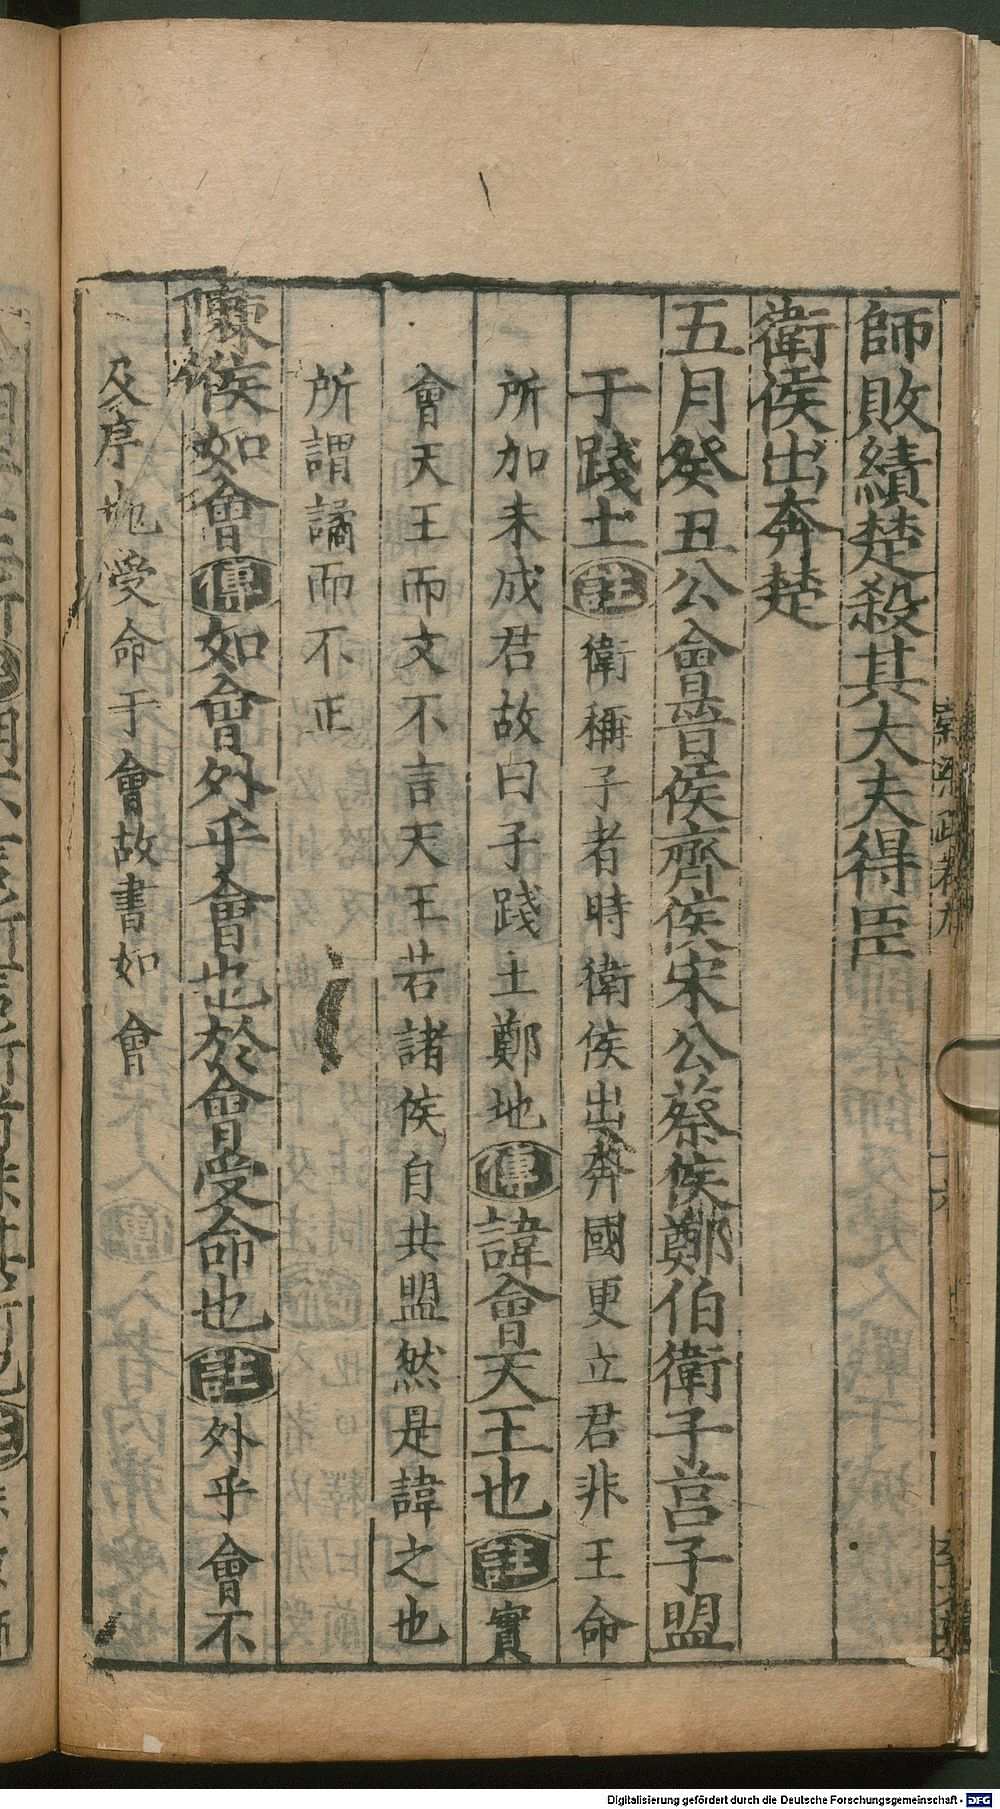 師敗績楚殺其大夫得臣
衛侯出奔楚
五月癸丑公會晉侯齊侯宋公蔡侯鄭伯衛子莒子盟
于踐土註衛稱子者時衛侯出奔國更立君非王命
所加未成君故曰子踐土鄭地傳諱會天王也註實
會天王而文不言天王若諸侯自共盟然是諱之也
所謂譎而不正
陳侯如會傳如會外乎會也於會受命也註外乎會不
及序也受命于會故書如會
Digitalisierung gefördert durch die Deutsche Forschungsgemeinschaft - DFG